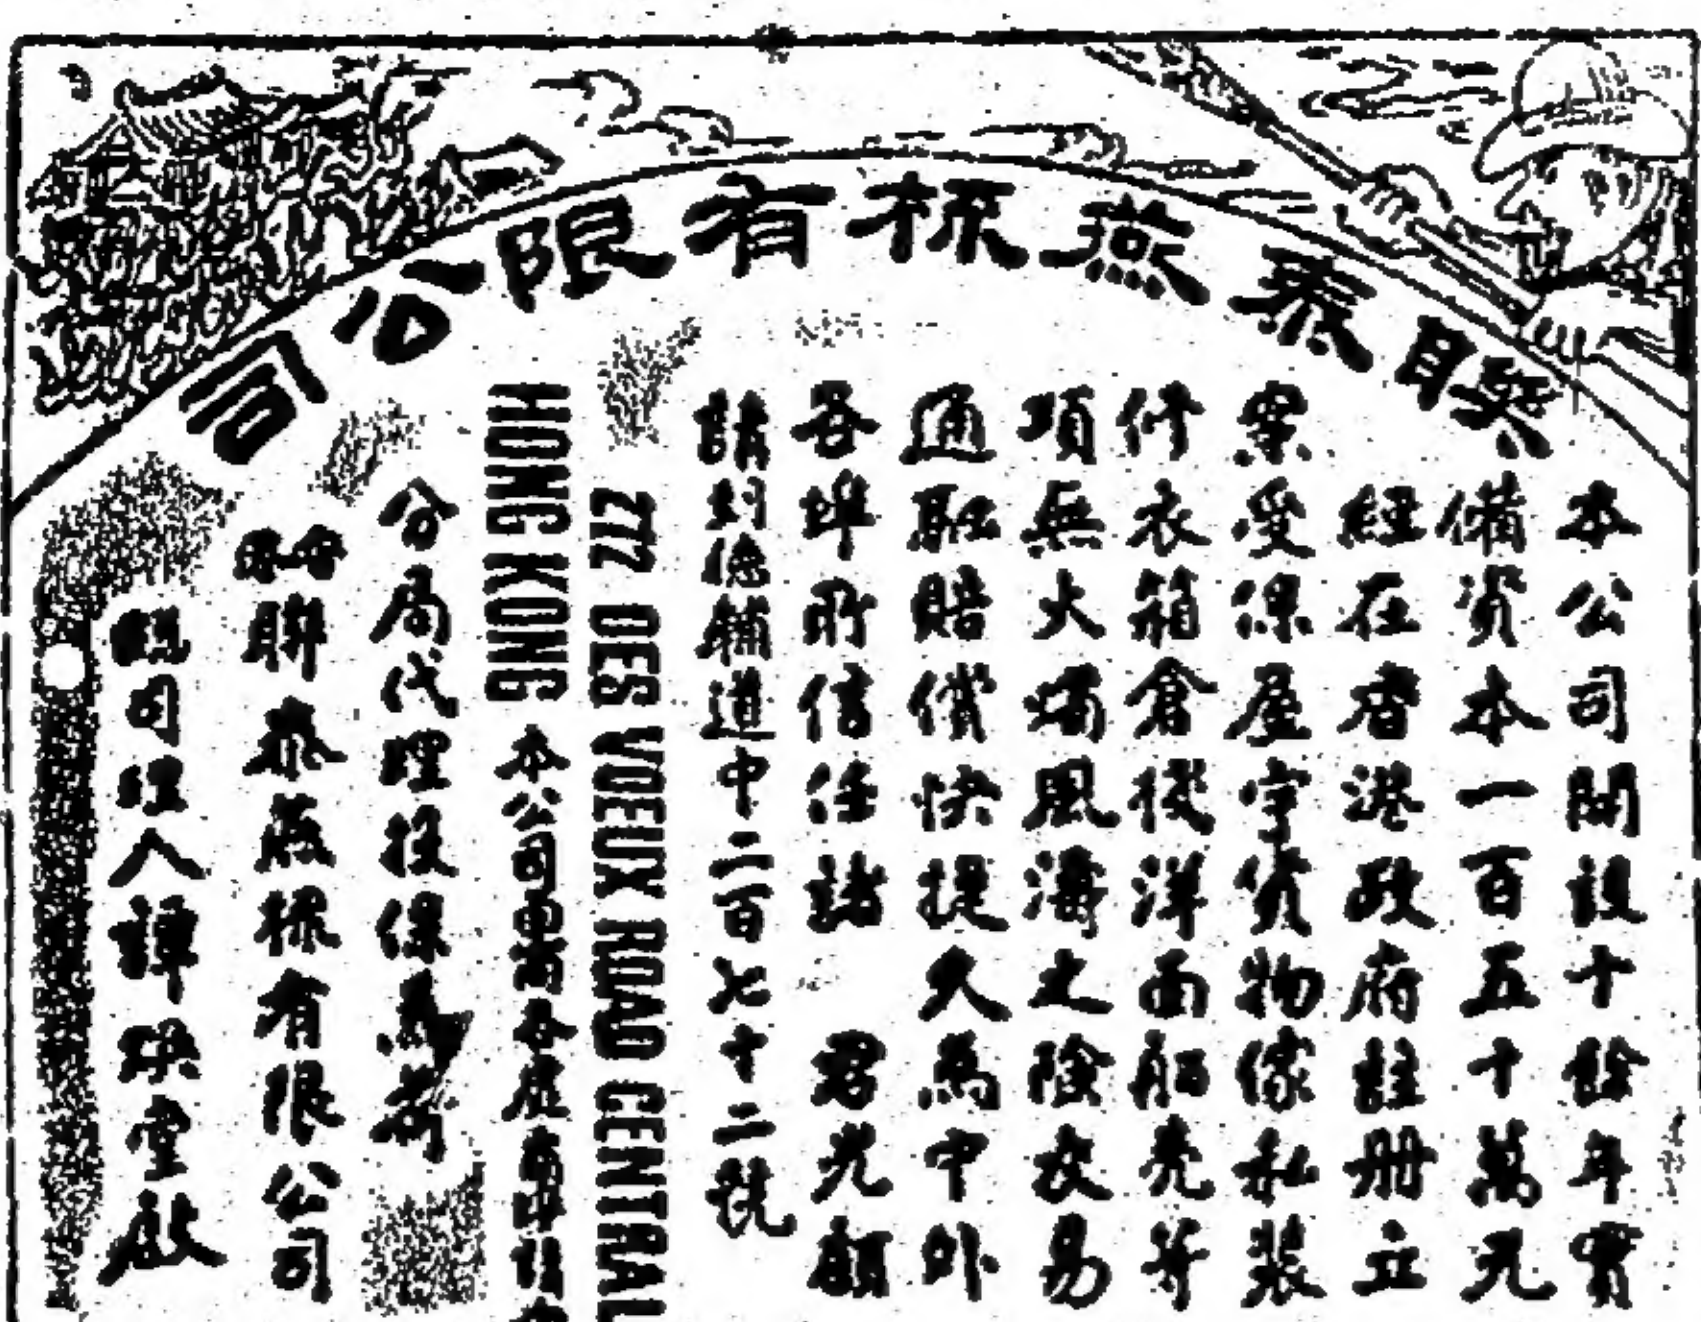 聯泰燕梳有限公司
本公司開設十餘年實
備資本一百五十萬元
經在香港政府註册立
案受保屋宇貨物傢私裝
修衣箱倉棧洋面船壳等
項無火燭風濤之險交易
通融賠償快捷久為中外
各埠所信任諸 君光顧
請到德輔道中二百七十二號
272 DES VOEUX ROAD CENTRAL
HONG KONG 本公司 各處
分局代理投保為荷
聯泰燕梳有限公司
司理人譚煥堂啟